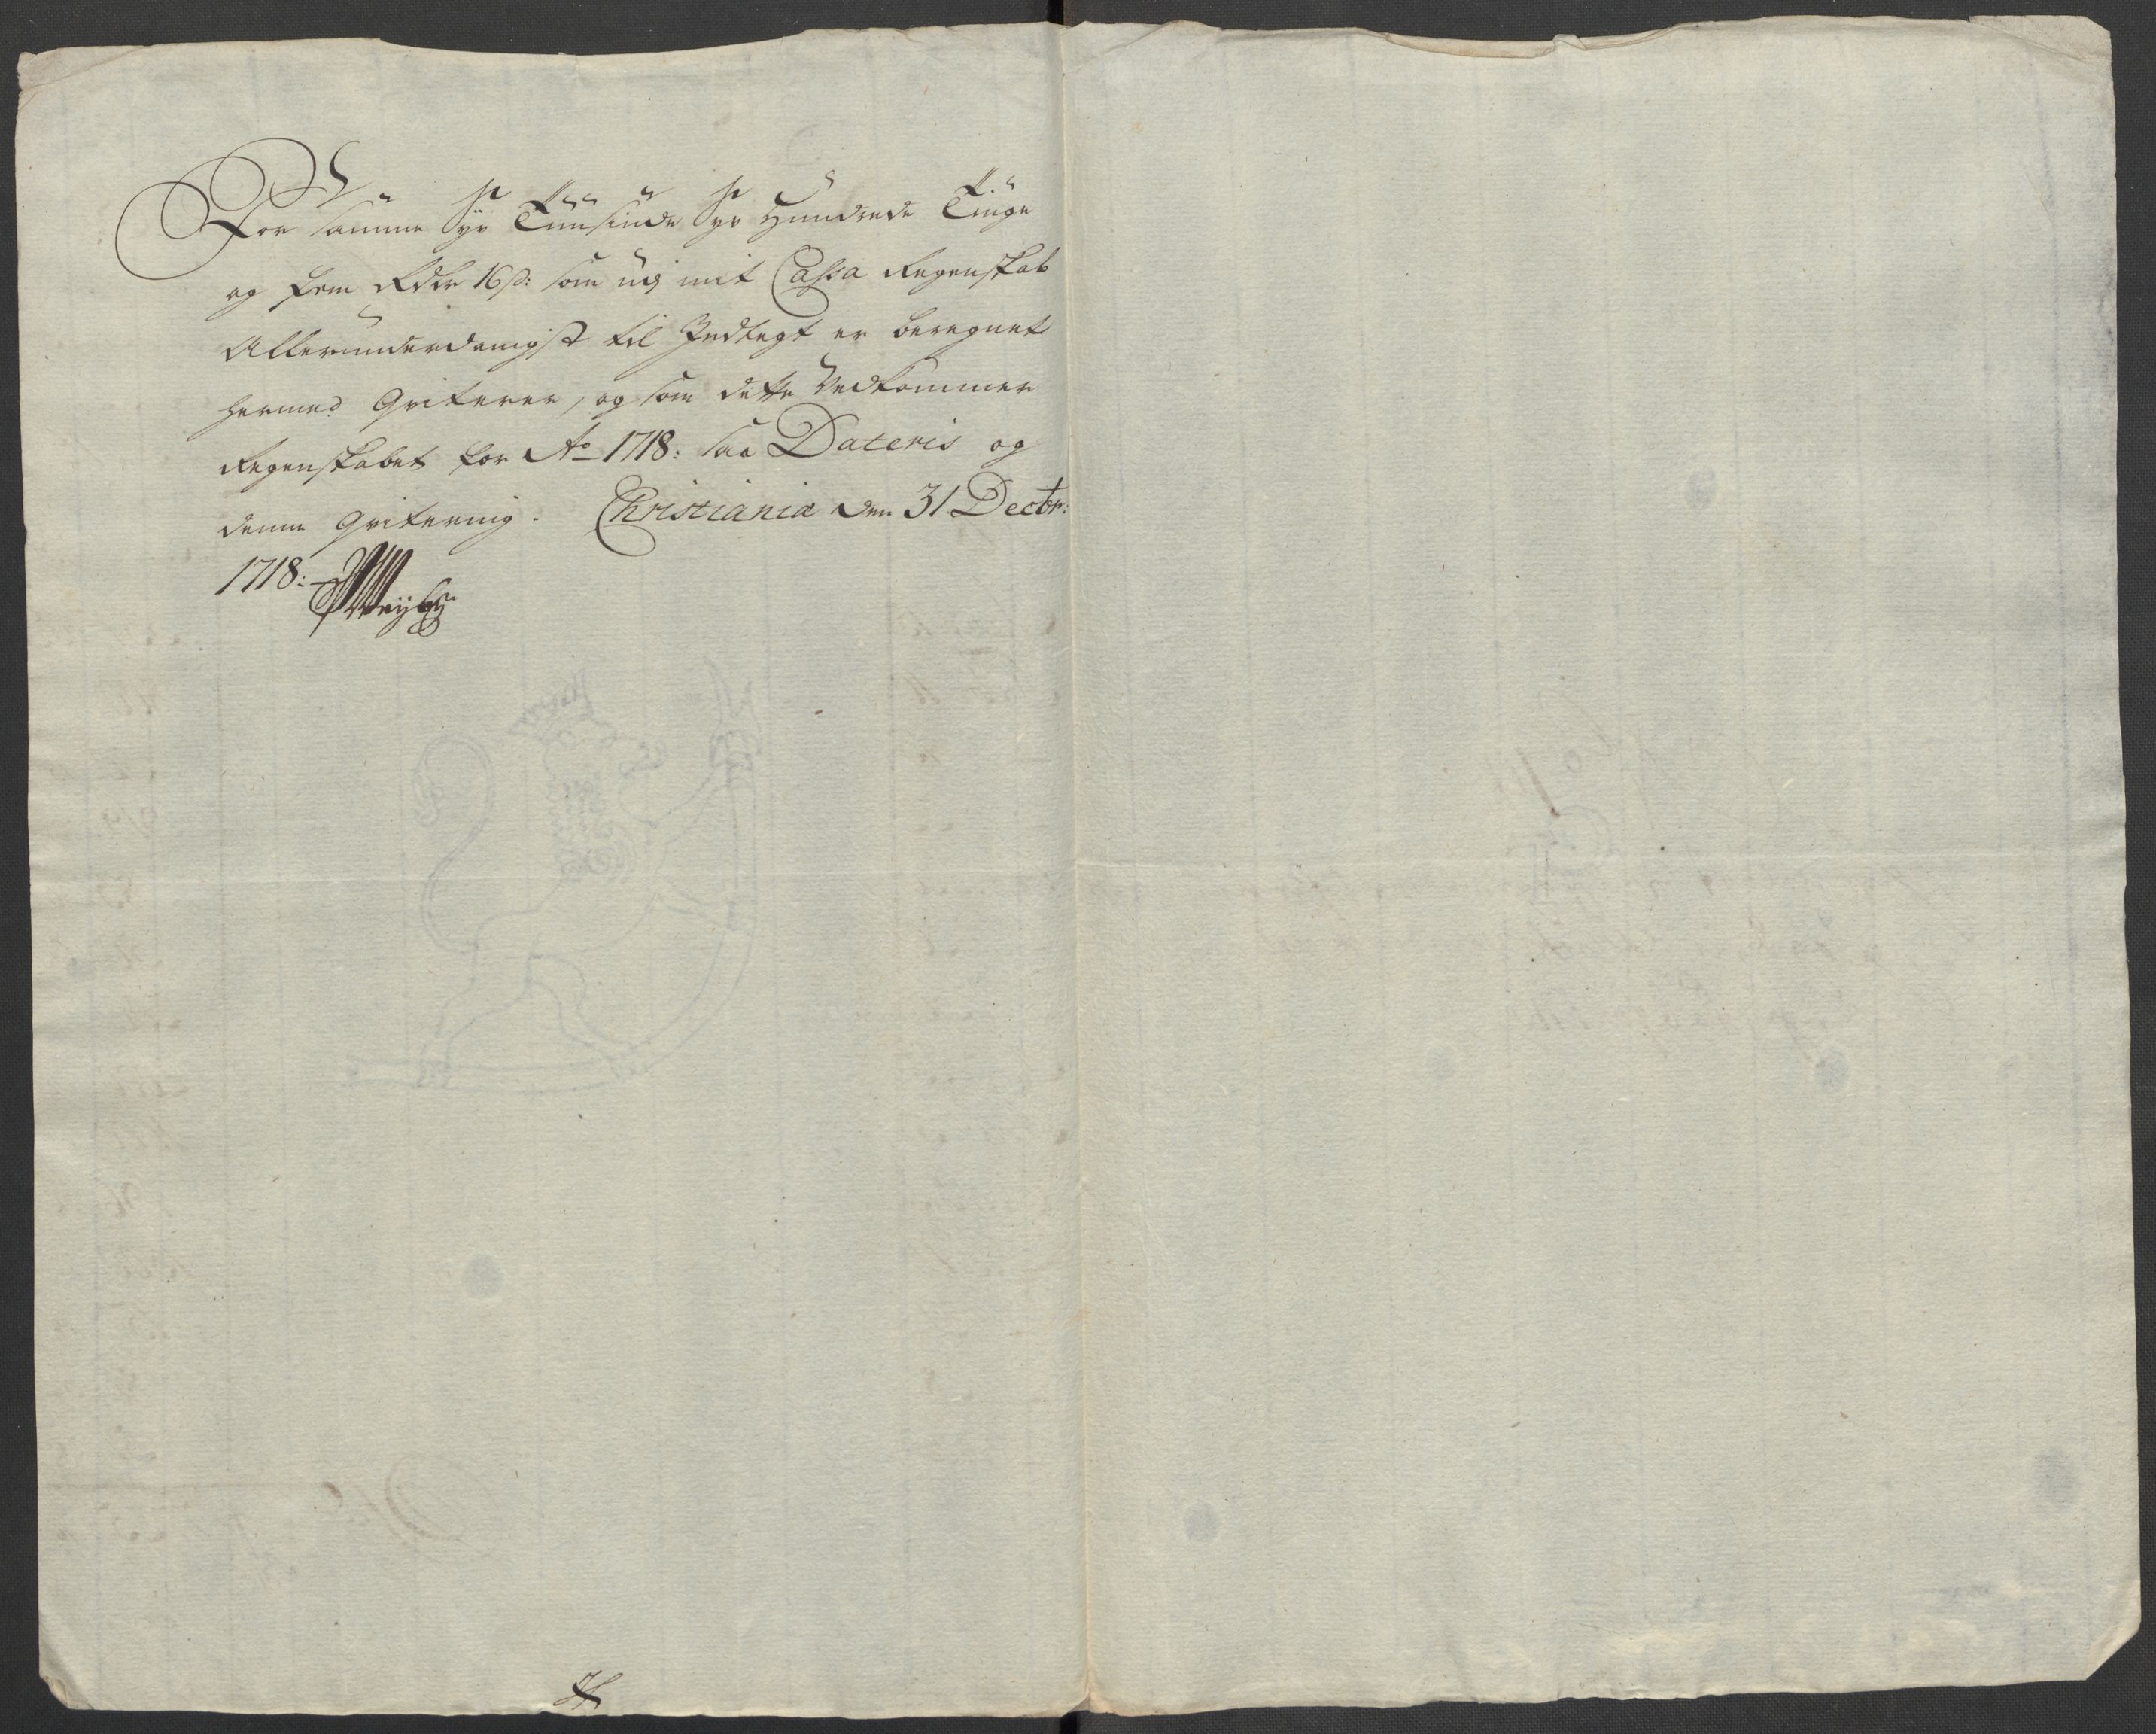 For samme Syv Tüüsinde Syv Hundrede Tiuge
og fem Rdlr 16 s: som udj mit Cassa Regenskab
Allerunderdanigst til Indtegt er beregnet
hermed Qviterer, og som dette Vedkommer
Regenskabet for Ao 1718: saa Dateris og
denne Qvitering. Christiania den 31 Decbr:
1718: